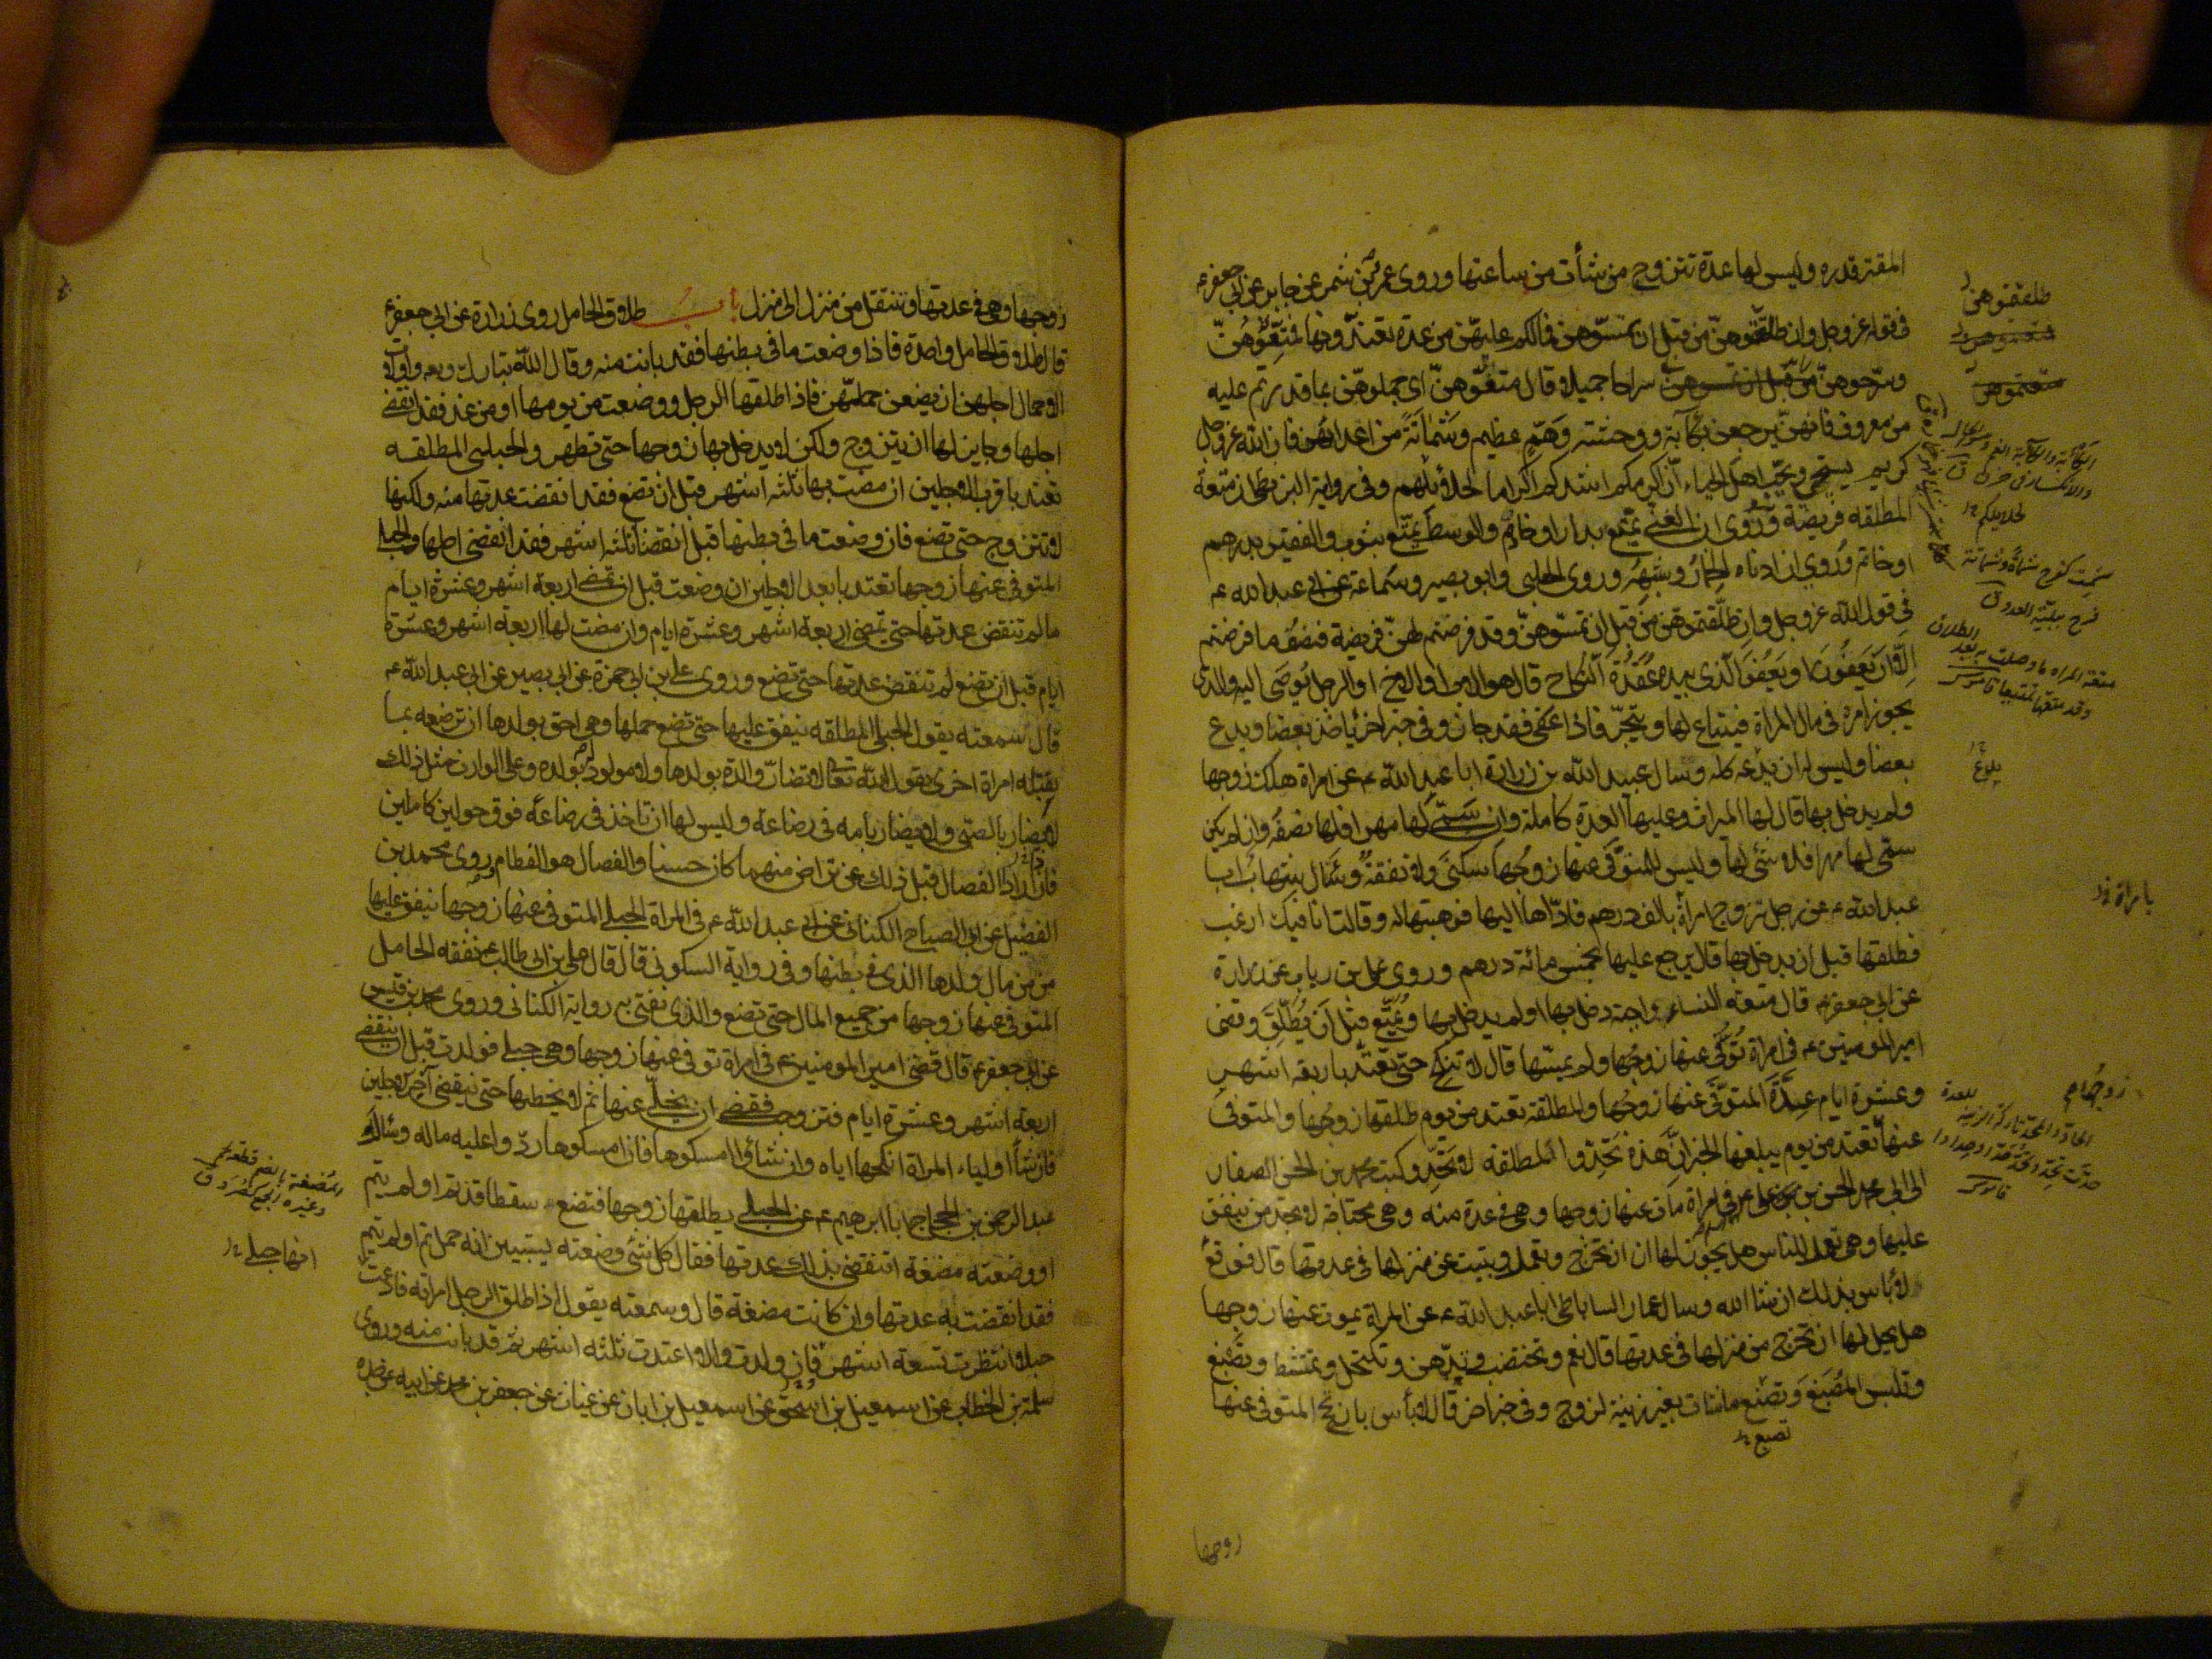 المقتر قدره وليس لها عدة تتزوج من شأت من ساعتها وروى عمرو بن شمر عن جابر عن ابي جعفر ع
في قوله عز وجل وان طلقتموهن من قبل ان تمسوهن فمالكم عليهن من عدة تعتدونها فمتعوهن
وسرحوهن سراحا جميلا قال متعوهن اي جملوهن بما قدرتم عليه
من معروف فانهن يرجعن بكآبة ووحشة وهم عظيم وشماتة من اعدائهن فان الله عز وجل
كريم يستحيي ويحب اهل الحياء ان اكرمكم اشدكم اكراما لحلائلهم وفي رواية البزنطي ان متعة
المطلقه فريضة وروي ان الغني يمتع بدار او خادم والوسط يمتع بثوب والفقير بدرهم
او خاتم وروي ان ادناه الخمار وشبهه وروى الحلبي وابو بصير وسماعة عن ابي عبد الله ع
في قول الله عز وجل وان طلقتموهن من قبل ان تمسوهن وقد فرضتم لهن فريضة فنصف ما فرضتم
الا ان يعفون او يعفو الذي بيده عقدة النكاح قال هو الاب او الاخ او الرجل يوصى اليه والذي
يجوز امره في مال المراة فيبتاع لها ويتجر فاذا عفى فقد جاز وفي خبر اخر ياخذ بعضا ويدع
بعضا وليس له ان يدع كله وسال عبيد الله بن زرارة ابا عبد الله ع عن امراة هلك زوجها
ولم يدخل بها قال لها الميراث وعليها العدة كاملة وان سمى لها مهرا فلها نصفه وان لم يكن
سمى لها مهرا فلا شئ لها وليس للمتوفى عنها زوجها سكنى ولا نفقة وسئال شهاب ابا
عبد الله ع عن رجل تزوج امراة بالف درهم فاداها اليها فوهبتها له وقالت انا فيك ارغب
فطلقها قبل ان يدخل بها قال يرجع عليها بخمس مائة درهم وروى علي بن رياب عن زرارة
عن ابي جعفر ع قال متعة النساء واجبة دخل بها او لم يدخل بها ويمتع قبل ان يطلق وقضى
امير المومنين ع في امراة توفى عنها زوجها ولم يمسها قال لا تنكح حتى تعتد باربعة اشهر
وعشرة ايام عدة المتوفى عنها زوجها والمطلقة تعتد من يوم طلقها زوجها والمتوفى
عنها تعتد من يوم يبلغها الخبر ان هذه تحد والمطلقه لا تحد وكتب محمد بن الحسن الصفار
الى ابي محمد الحسن بن علي ع في امراة مات عنها زوجها وهي في عدة منه وهي محتاجة لا تجد من ينفق
عليها وهي تعمل للناس هل يجوز لها ان تخرج وتعمل وتبيت عن منزلها في عدتها قال فوقع
لا باس بذلك ان شا الله وسال عمار الساباطي ابا عبد الله ع عن المراة يموت عنها زوجها
هل يحل لها ان تخرج من منزلها في عدتها قال نعم وتختضب وتدهن وتكتحل وتمتشط وتصبغ
وتلبس المصبغ وتصنع ماشات بغير زينة لزوج وفي خبر اخر قال لا باس بان تحج المتوفى عنها
تصبغ
زوجها
طلقتموهن
لحلائلكم
بامراة
زوجها ع
زوجها وهي في عدتها وتنتقل من منزل الى منزل باب طلاق الحامل روى زرارة عن ابي جعفر ع
قال طلاق الحامل واحدة فاذا وضعت ما في بطنها فقد بانت منه وقال الله تبارك وتعالى واولات
الاحمال اجلهن ان يضعن حملهن فاذا طلقها الرجل ووضعت من يومها او من غد فقد انقضى
اجلها وجايز لها ان يتزوج ولكن لا يدخل بها زوجها حتى تطهر والحبلى المطلقه
تعتد باقرب الاجلين ان مضت بها ثلثه اشهر قبل ان تضع فقد انقضت عدتها منه ولكنها
لا تتزوج حتى تضع فان وضعت ما في بطنها قبل انقضا ثلثه اشهر فقد انقضى اجلها والحبلى
المتوفى عنها زوجها تعتد بابعد الاجلين ان وضعت قبل ان تمضي اربعة اشهر وعشرة ايام
ما لم تنقض عدتها حتى تمضي اربعة اشهر وعشرة ايام وان مضت لها اربعة اشهر وعشرة
ايام قبل ان تضع لم تنقض عدتها حتى تضع وروى علي بن ابي حمزة عن ابي بصير عن ابي عبد الله ع
قال سمعته يقول الحبلى المطلقه ينفق عليها حتى تضع حملها وهي احق بولدها ان ترضعه بما
يقبله امراة اخرى يقول الله تعالى لا تضار والدة بولدها ولا مولود له بولده وعلى الوارث مثل ذلك
لا يضار بالصبي ولا يضار بامه في رضاعه وليس لها ان تاخذ في رضاعه فوق حولين كاملين
فان ارادا الفصال قبل ذلك عن تراض منهما كان حسنا والفصال هو الفطام وروى محمد بن
الفضيل عن ابي الصباح الكناني عن ابي عبد الله ع في المراة الحبلى المتوفى عنها زوجها ينفق عليها
من مال ولدها الذي في بطنها وفي رواية السكوني قال قال علي بن ابي طالب ع نفقه الحامل
المتوفى عنها زوجها من جميع المال حتى تضع والذي نفتي به رواية الكناني وروى محمد بن قيس
عن ابي جعفر ع قال قضى امير المومنين ع في امراة توفى عنها زوجها وهي حبلى فولدت قبل ان ينقضي
اربعة اشهر وعشرة ايام فتزوجت فقضى ان يخلي عنها ثم لا يخطبها حتى ينقضي آخر الاجلين
فان شأ اولياء المراة انكحها اياه وان شاؤا امسكوها فان امسكوها ردوا عليه ماله وسال
عبد الرحمن بن الحجاج ابا ابرهيم ع عن الحبلى يطلقها زوجها فتضع سقطا قد تم او لم يتم
او وضعته مضغة اتنقضي بذلك عدتها فقال كل شئ وضعته يستبين انه حمل تم او لم يتم
فقد انقضت به عدتها وان كانت مضغة قال وسمعته يقول اذا طلق الرجل امراته فادعت
حبلا انتظرت تسعة اشهر فان ولدت والا اعتدت ثلثه اشهر ثم قد بانت منه وروى
سلمة بن الخطاب عن اسمعيل بن اسحق عن اسمعيل بن ابان عن غياث عن جعفر بن محمد عن ابيه عن جده
المضغة بالضم قطعة لحم
انها حبلى